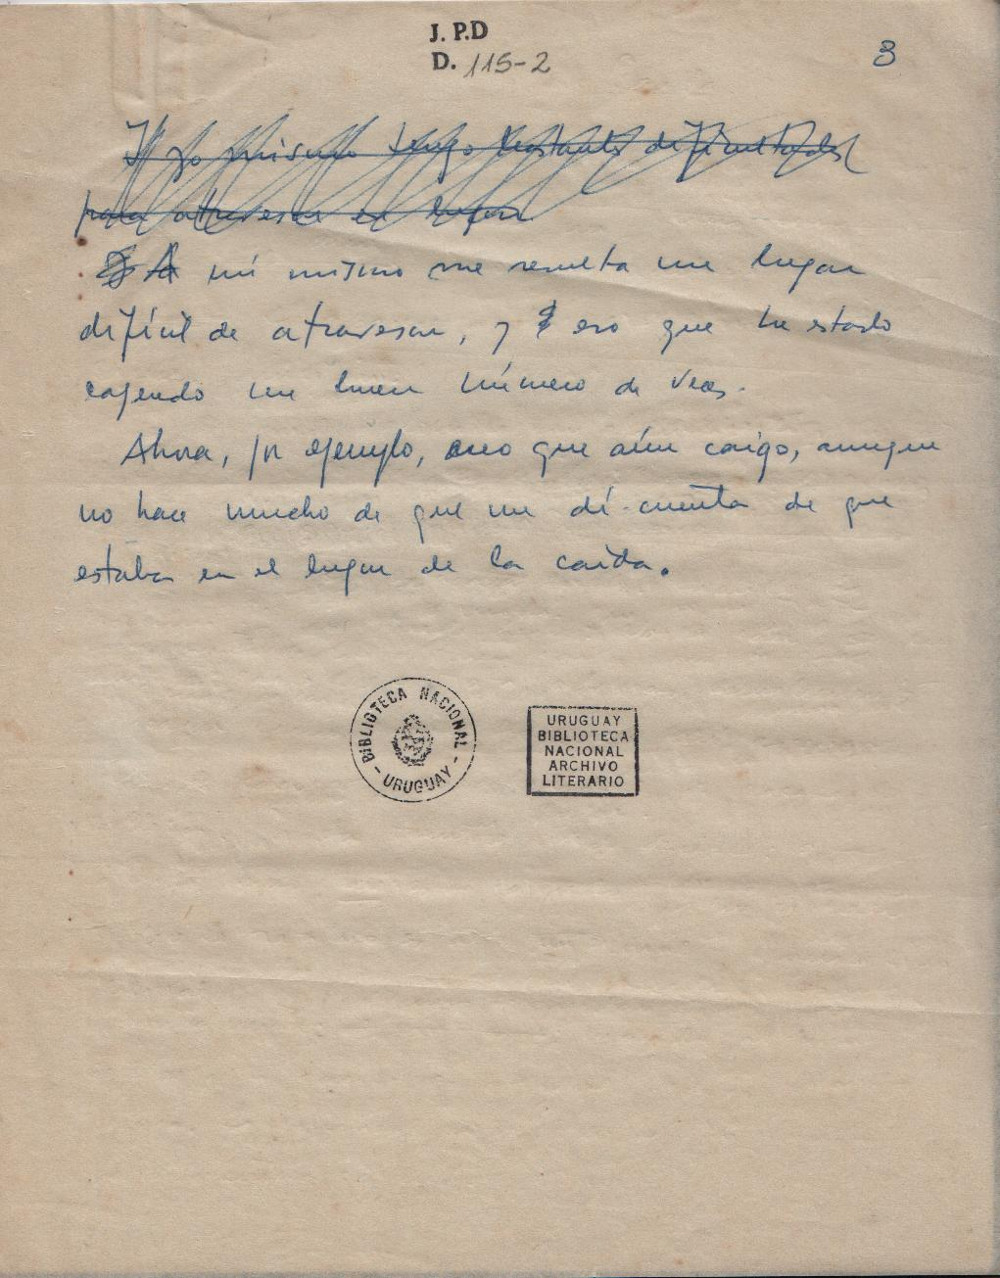 J. P.D
D. 115-2
3
Y yo mismo tengo bastante dificultades
para atravesar el lugar
A mí mismo me resulta un lugar
difícil de atravesar, y creo que he estado
cayendo un buen número de veces.
Ahora, por ejemplo, creo que aún caigo, aunque
no hace mucho de que me dí cuenta de que
estaba en el lugar de la caída.
BIBLIOTECA NACIONAL
- URUGUAY -
URUGUAY
BIBLIOTECA
NACIONAL
ARCHIVO
LITERARIO